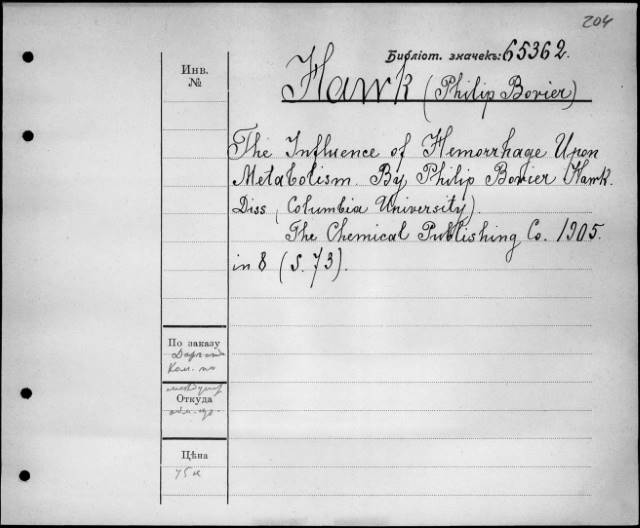 204
Библіот. значекъ: 65362.
Инв.
№
Hawk (Philip Bovier)
The Influence of Hemorrhage Upon
Metabolism. By Philip Bovier Hawk.
Diss. (Columbia University).
The Chemical Publishing Co. 1905.
in 8 (S. 73).
По заказу
Ком. по
Откуда
Цѣна
75 к